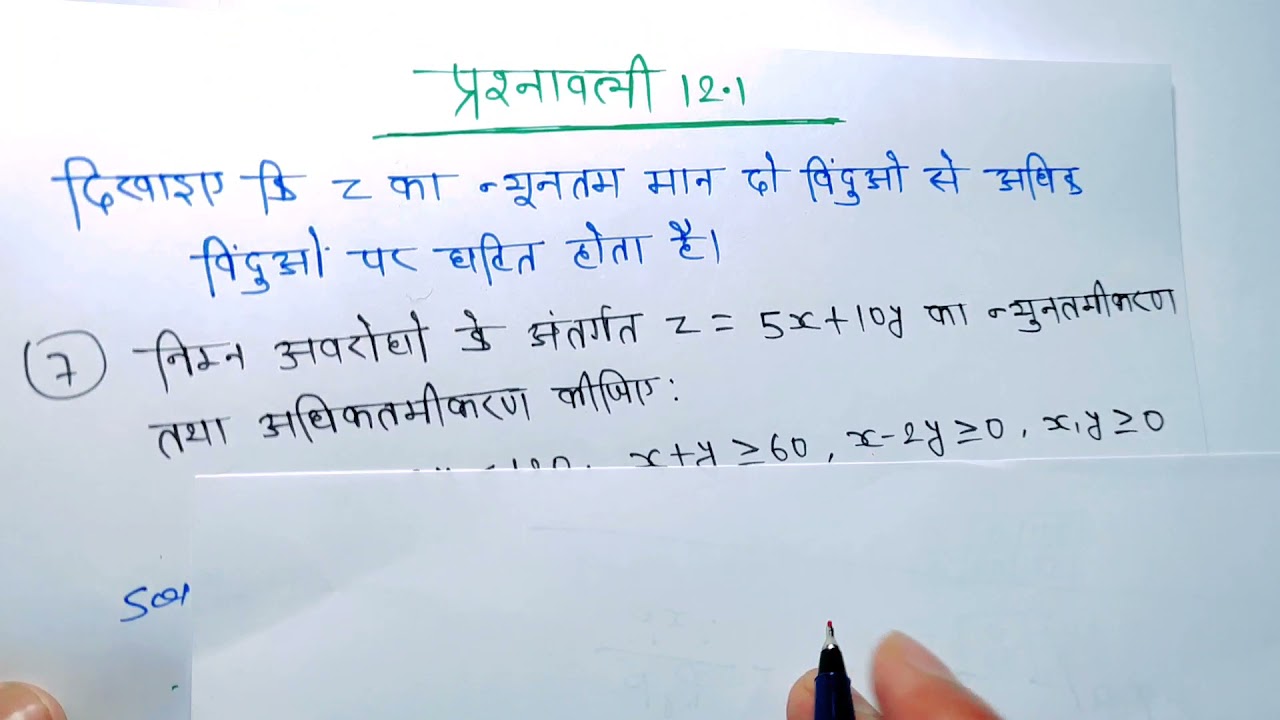 प्रश्नावली 12.1
दिखाइए कि z का न्यूनतम मान दो बिंदुओ से अधिक
बिंदुओं पर घटित होता है।
7 निम्न अवरोधो के अंतर्गत z = 5x+10y का न्युनतमीकरण
तथा अधिकतमीकरण कीजिए:
x+y ≥ 60, x-2y ≥ 0, x,y ≥ 0
Sol